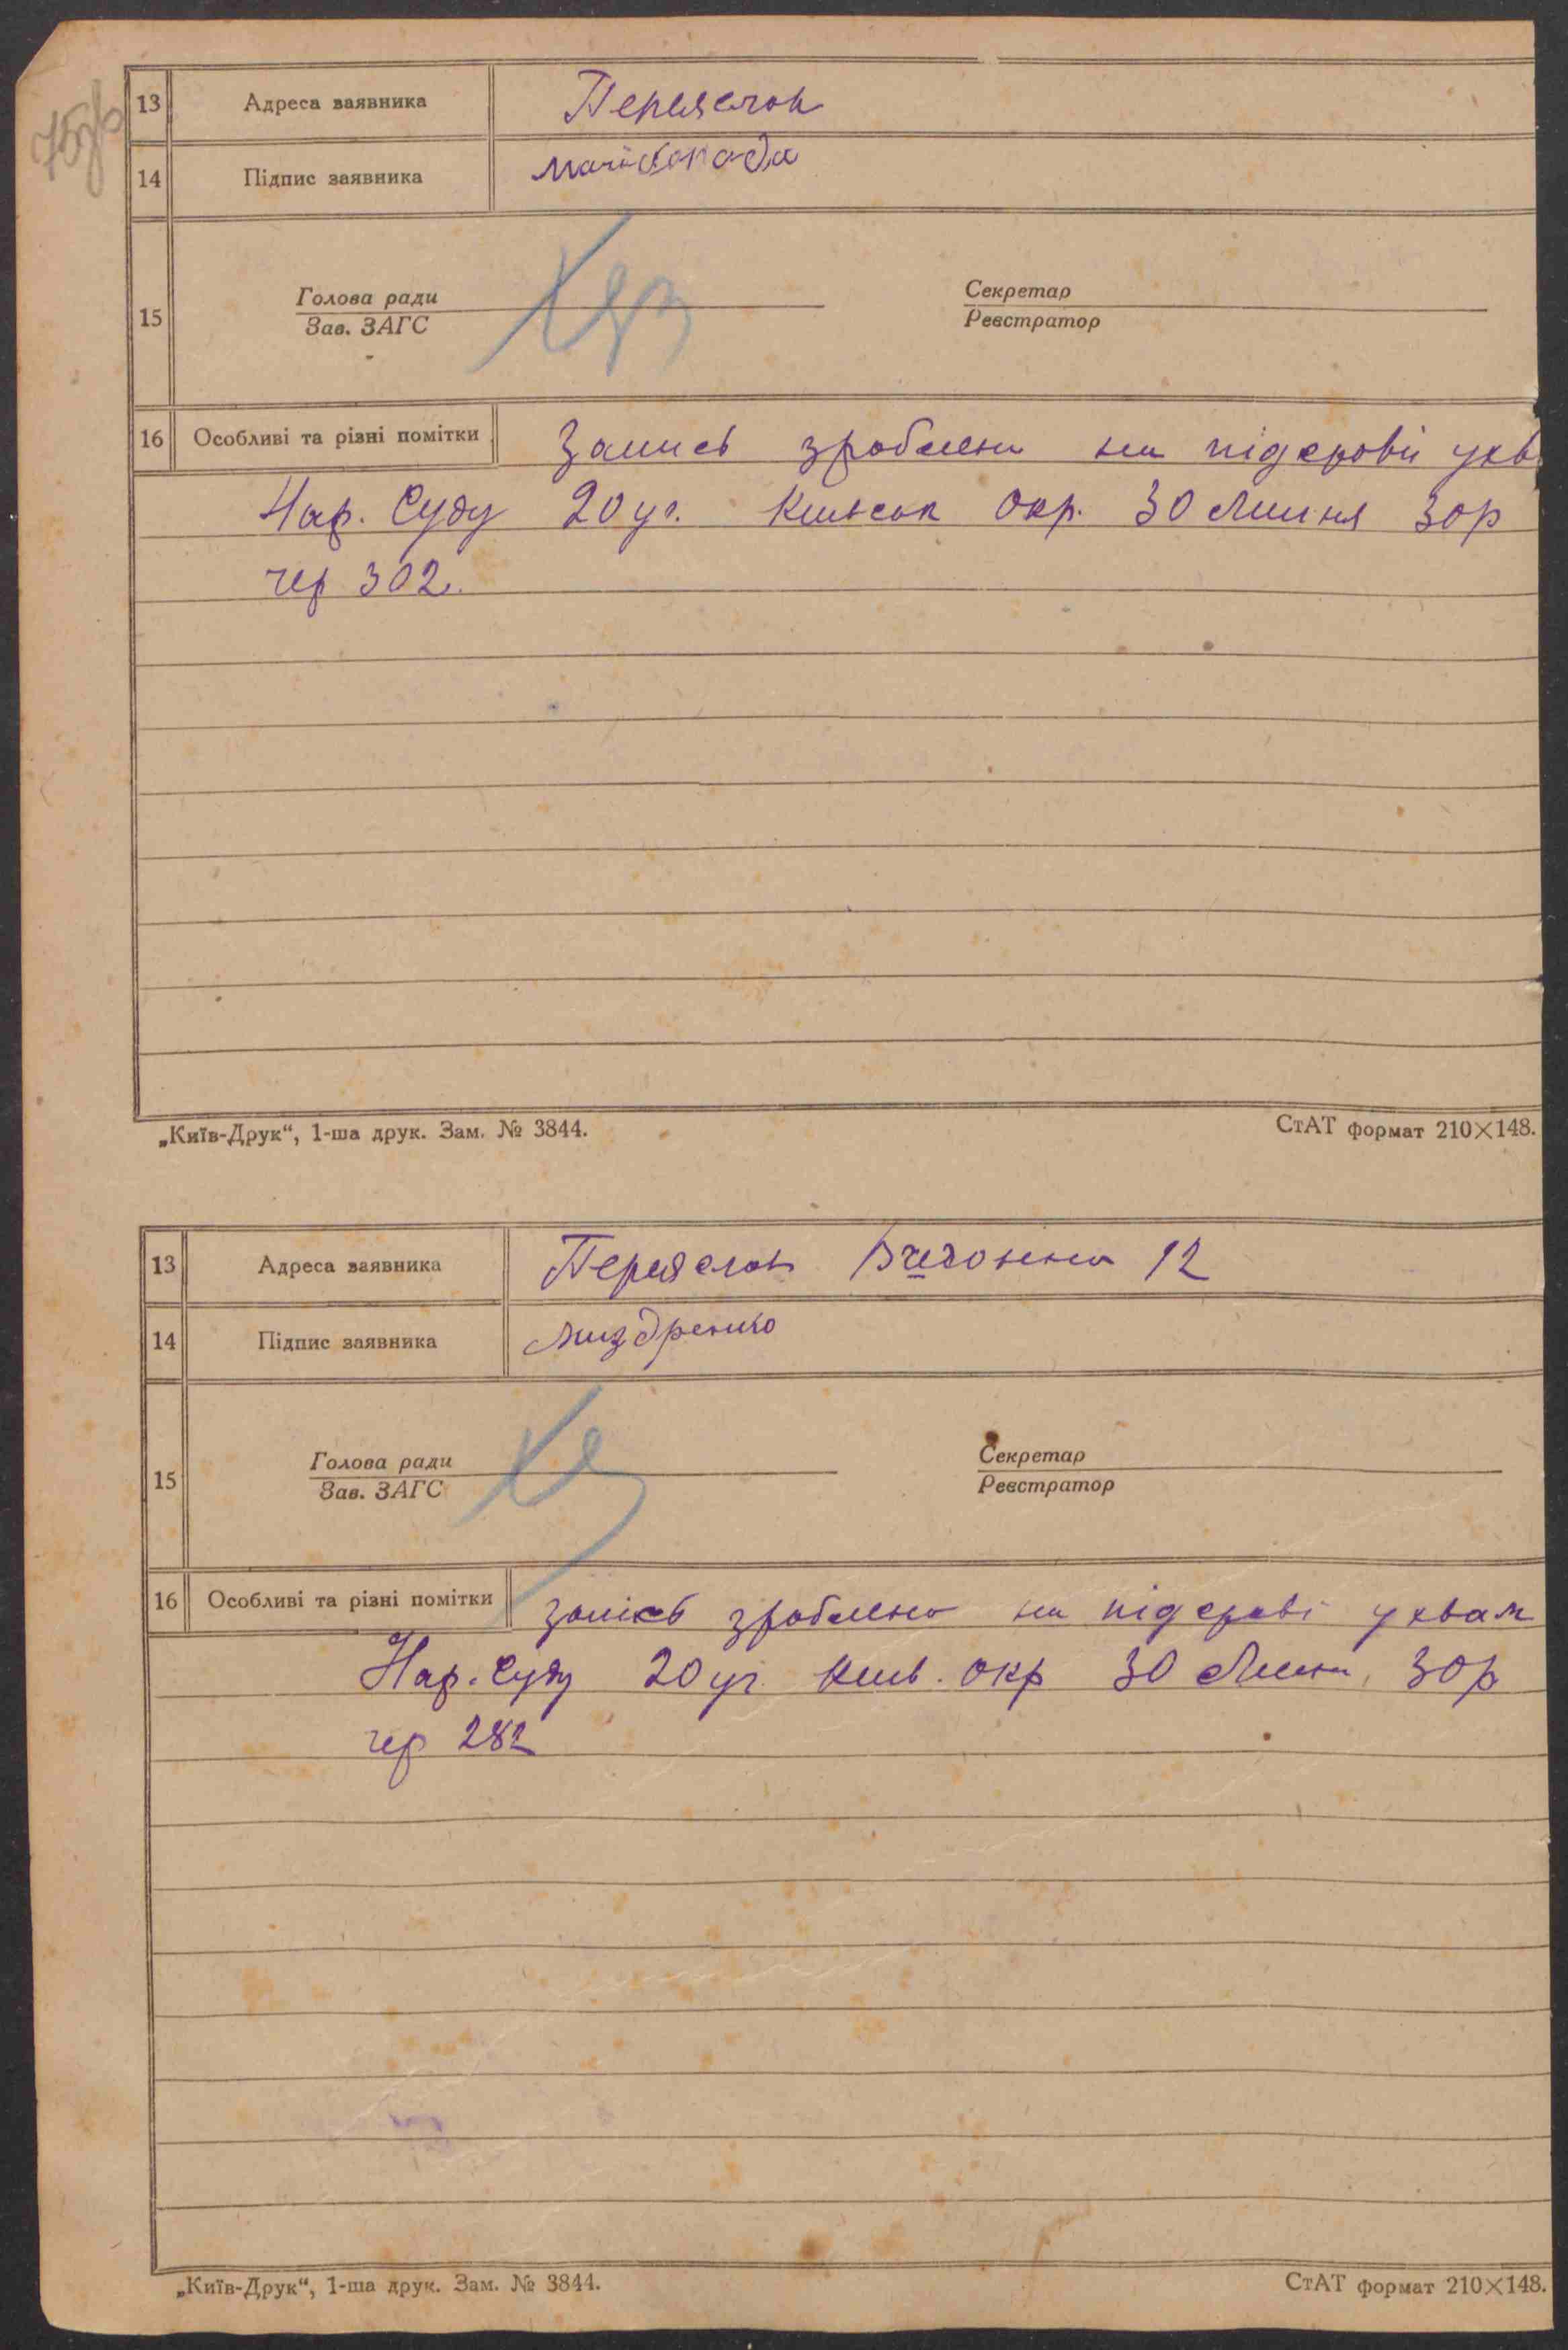 13 Адреса заявника Переяслов
14 Підпис заявника
15 Голова ради Секретар
Зав. ЗАГС Реєстратор
16 Особливі та різні помітки Запись зроблено на підставі ухв
Нар. Суду 20 уч. Київськ Окр. 30 Липня 30 р
чер 302.
„Київ-Друк“, 1-ша друк. Зам. № 3844. СтАТ формат 210×148.
13 Адреса заявника Переяслов 12
14 Підпис заявника Миздренко
15 Голова ради Секретар
Зав. ЗАГС Реєстратор
16 Особливі та різні помітки запісь зроблено на підставі ухвал
Нар. Суду 20 уч. Київ. Окр 30 Липн. 30 р
чер 282
„Київ-Друк“, 1-ша друк. Зам. № 3844. СтАТ формат 210×148.